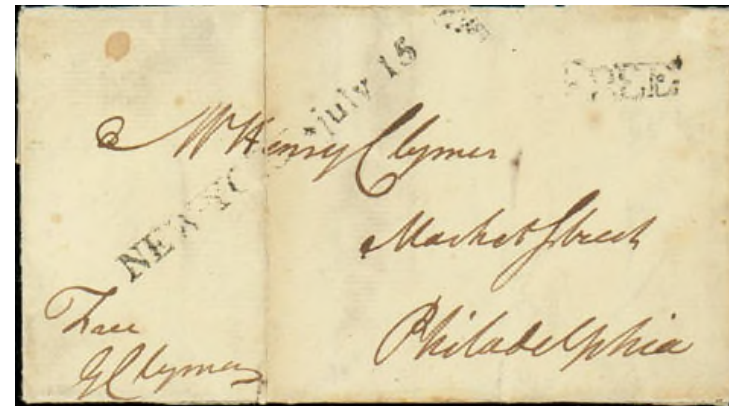 NEW-YORK *july 15
FREE
Mr Henry Clymer
Market Street
Philadelphia
Free
G Clymer